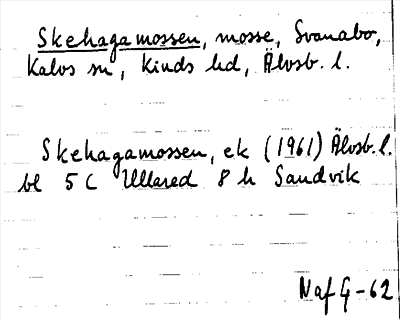 Skehagamossen, mosse, Svanabo,
Kalvs sn, Kinds hd, Älvsb. l.
Skehagamossen, ek (1961) Älvsb. l.
bl 5 C Ullared 8 h Sandvik
Naf G-62